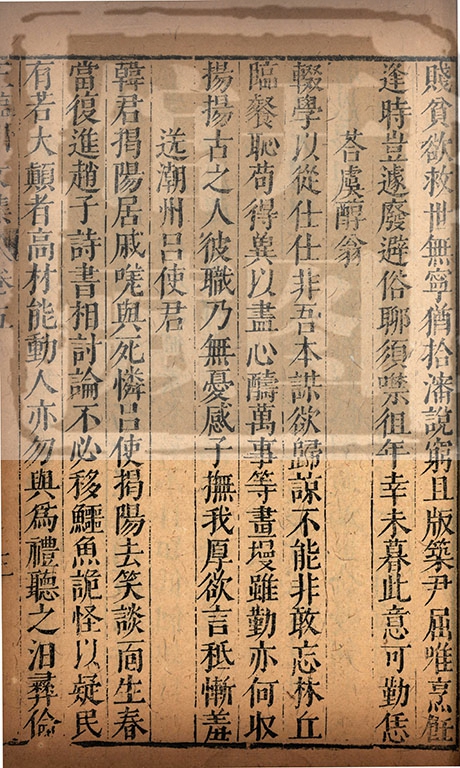 賤貧欲救世無寧猶拾瀋說窮且版築尹屈唯烹飪
逢時豈遽廢避俗聊須噤徂年幸未暮此意可勤恁
荅虞醇翁
輟學以從仕仕非吾本謀欲歸諒不能非敢忘林丘
臨餐恥苟得兾以盡心醻萬事等畫墁雖勤亦何收
揚揚古之人彼職乃無憂感子撫我厚欲言秪慚羞
送潮州吕使君
韓君揭陽居戚嗟與死憐吕使揭陽去笑談面生春
當復進趙子詩書相討論不必移鱷魚詭怪以疑民
有若大顛者高材能動人亦勿與為禮聽之汨彝倫